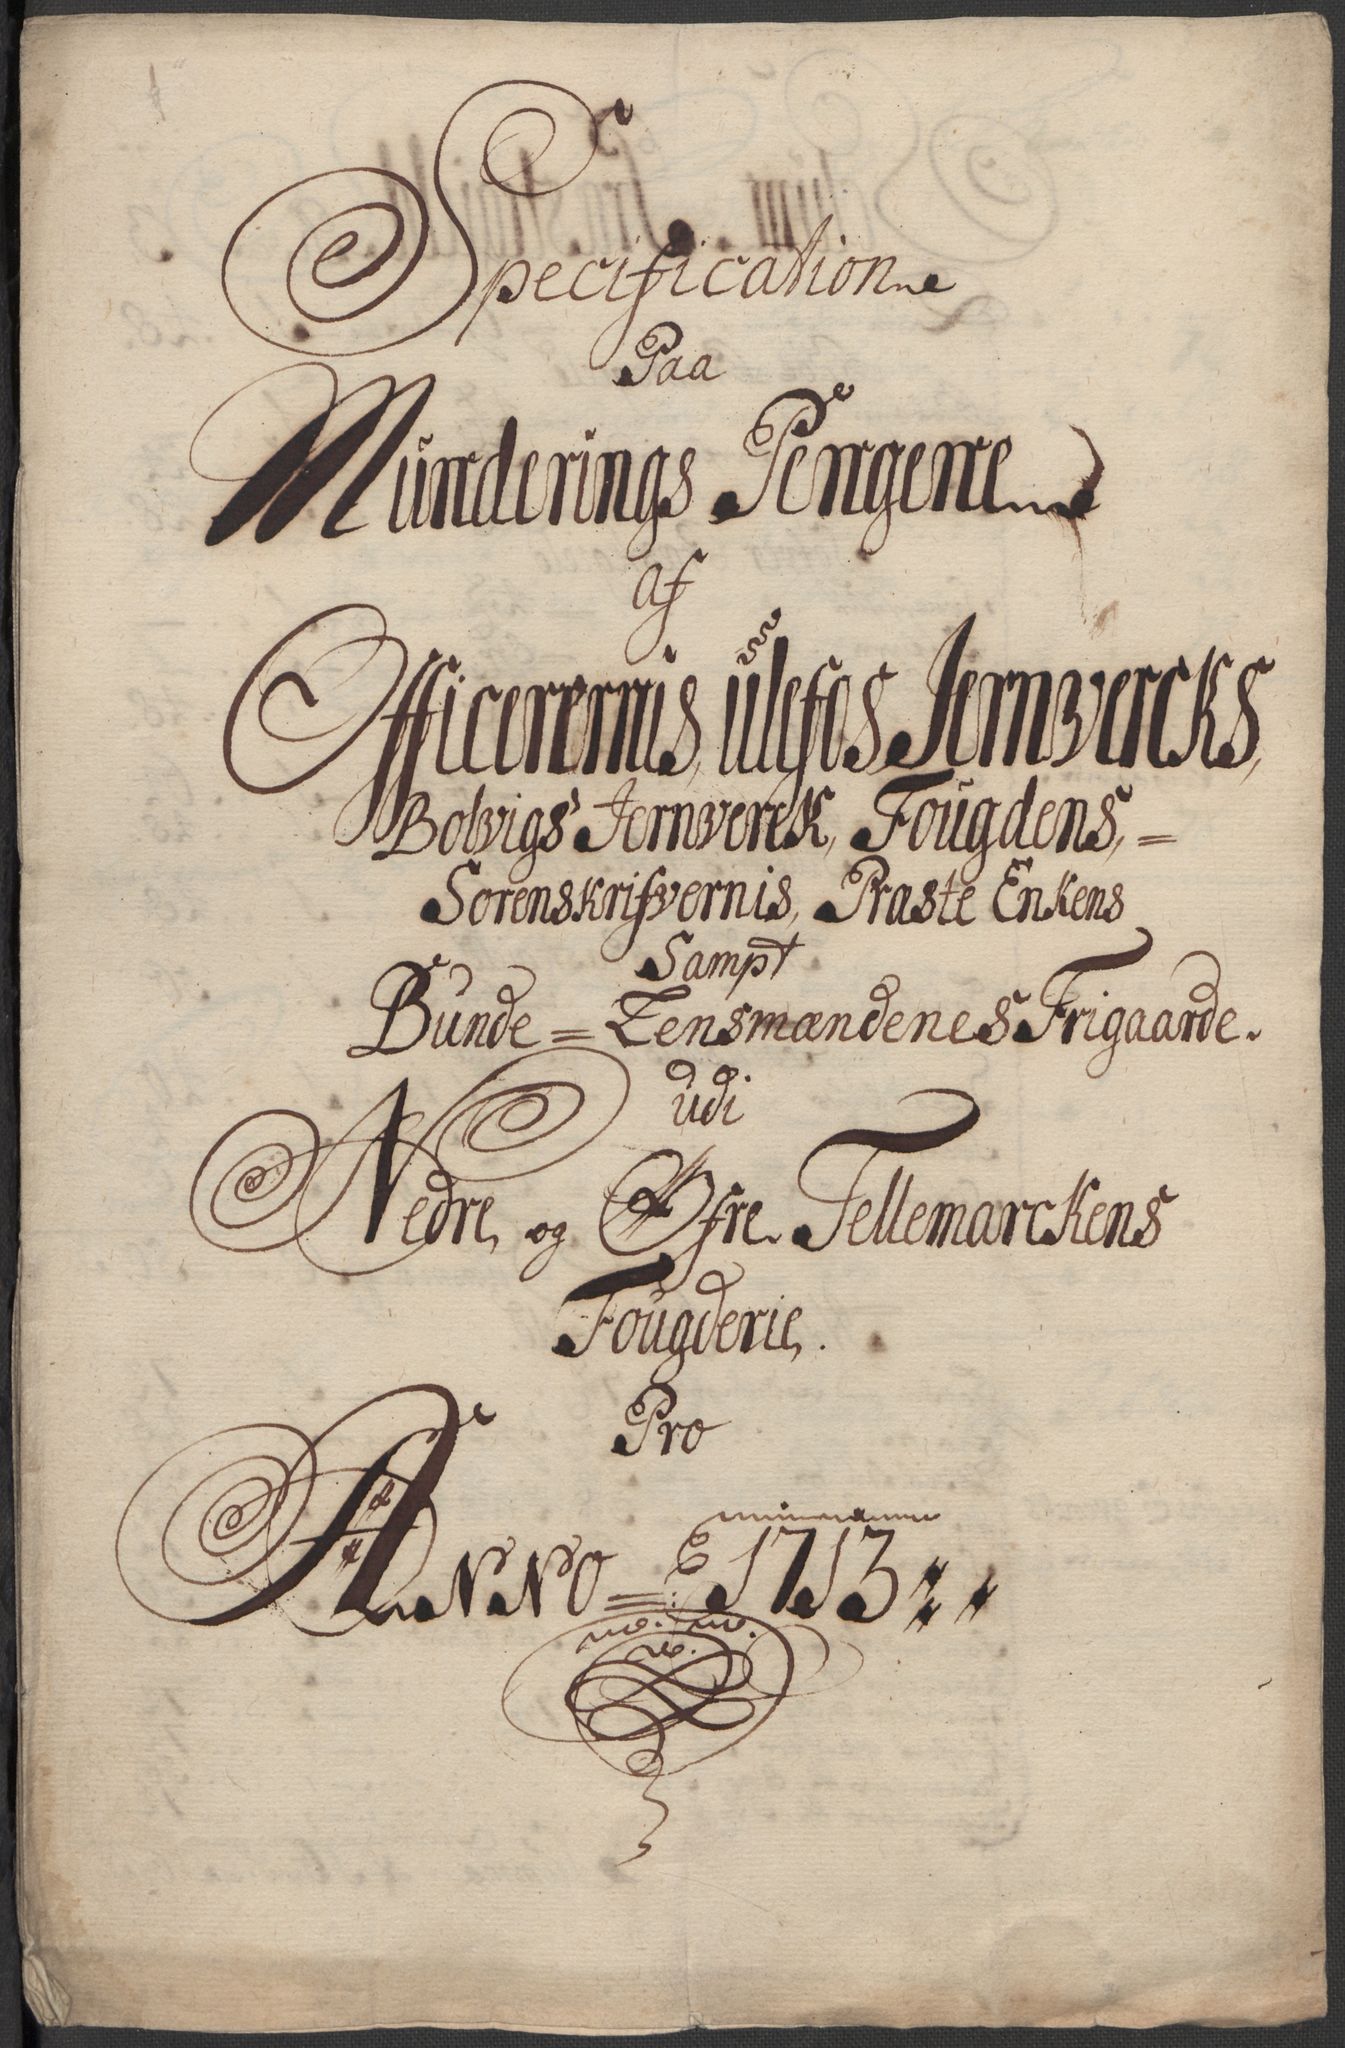 Specification
Paa
Munderings Pengene
af
Officerernis, Ulefos Jernvercks,
Bolvigs Jernverck, Fougdens,=
Sorenskrifvernis, Præste Enkens
Sampt
Bunde=Lensmændenes Frigaarde.
udi
Nedre, og Øfre Tellemarckens
Fougderie.
Pro
ANNO = 1713